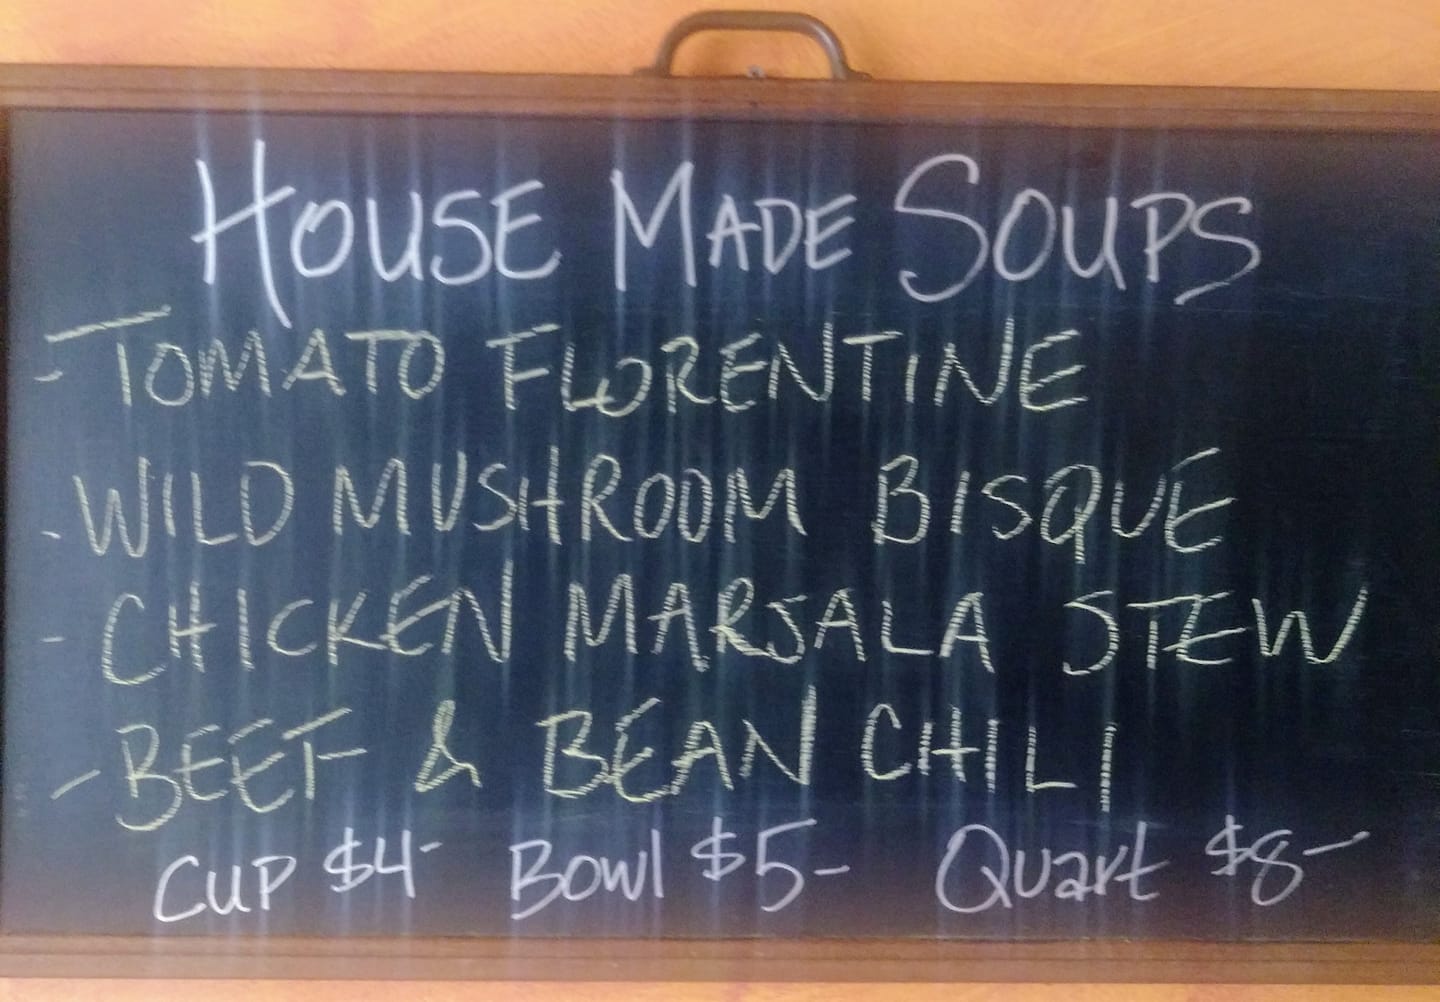 HOUSE MADE SOUPS
- TOMATO FLORENTINE
- WILD MUSHROOM BISQUE
- CHICKEN MARSALA STEW
- BEEF & BEAN CHILI
CUP $4- Bowl $5- Quart $8-